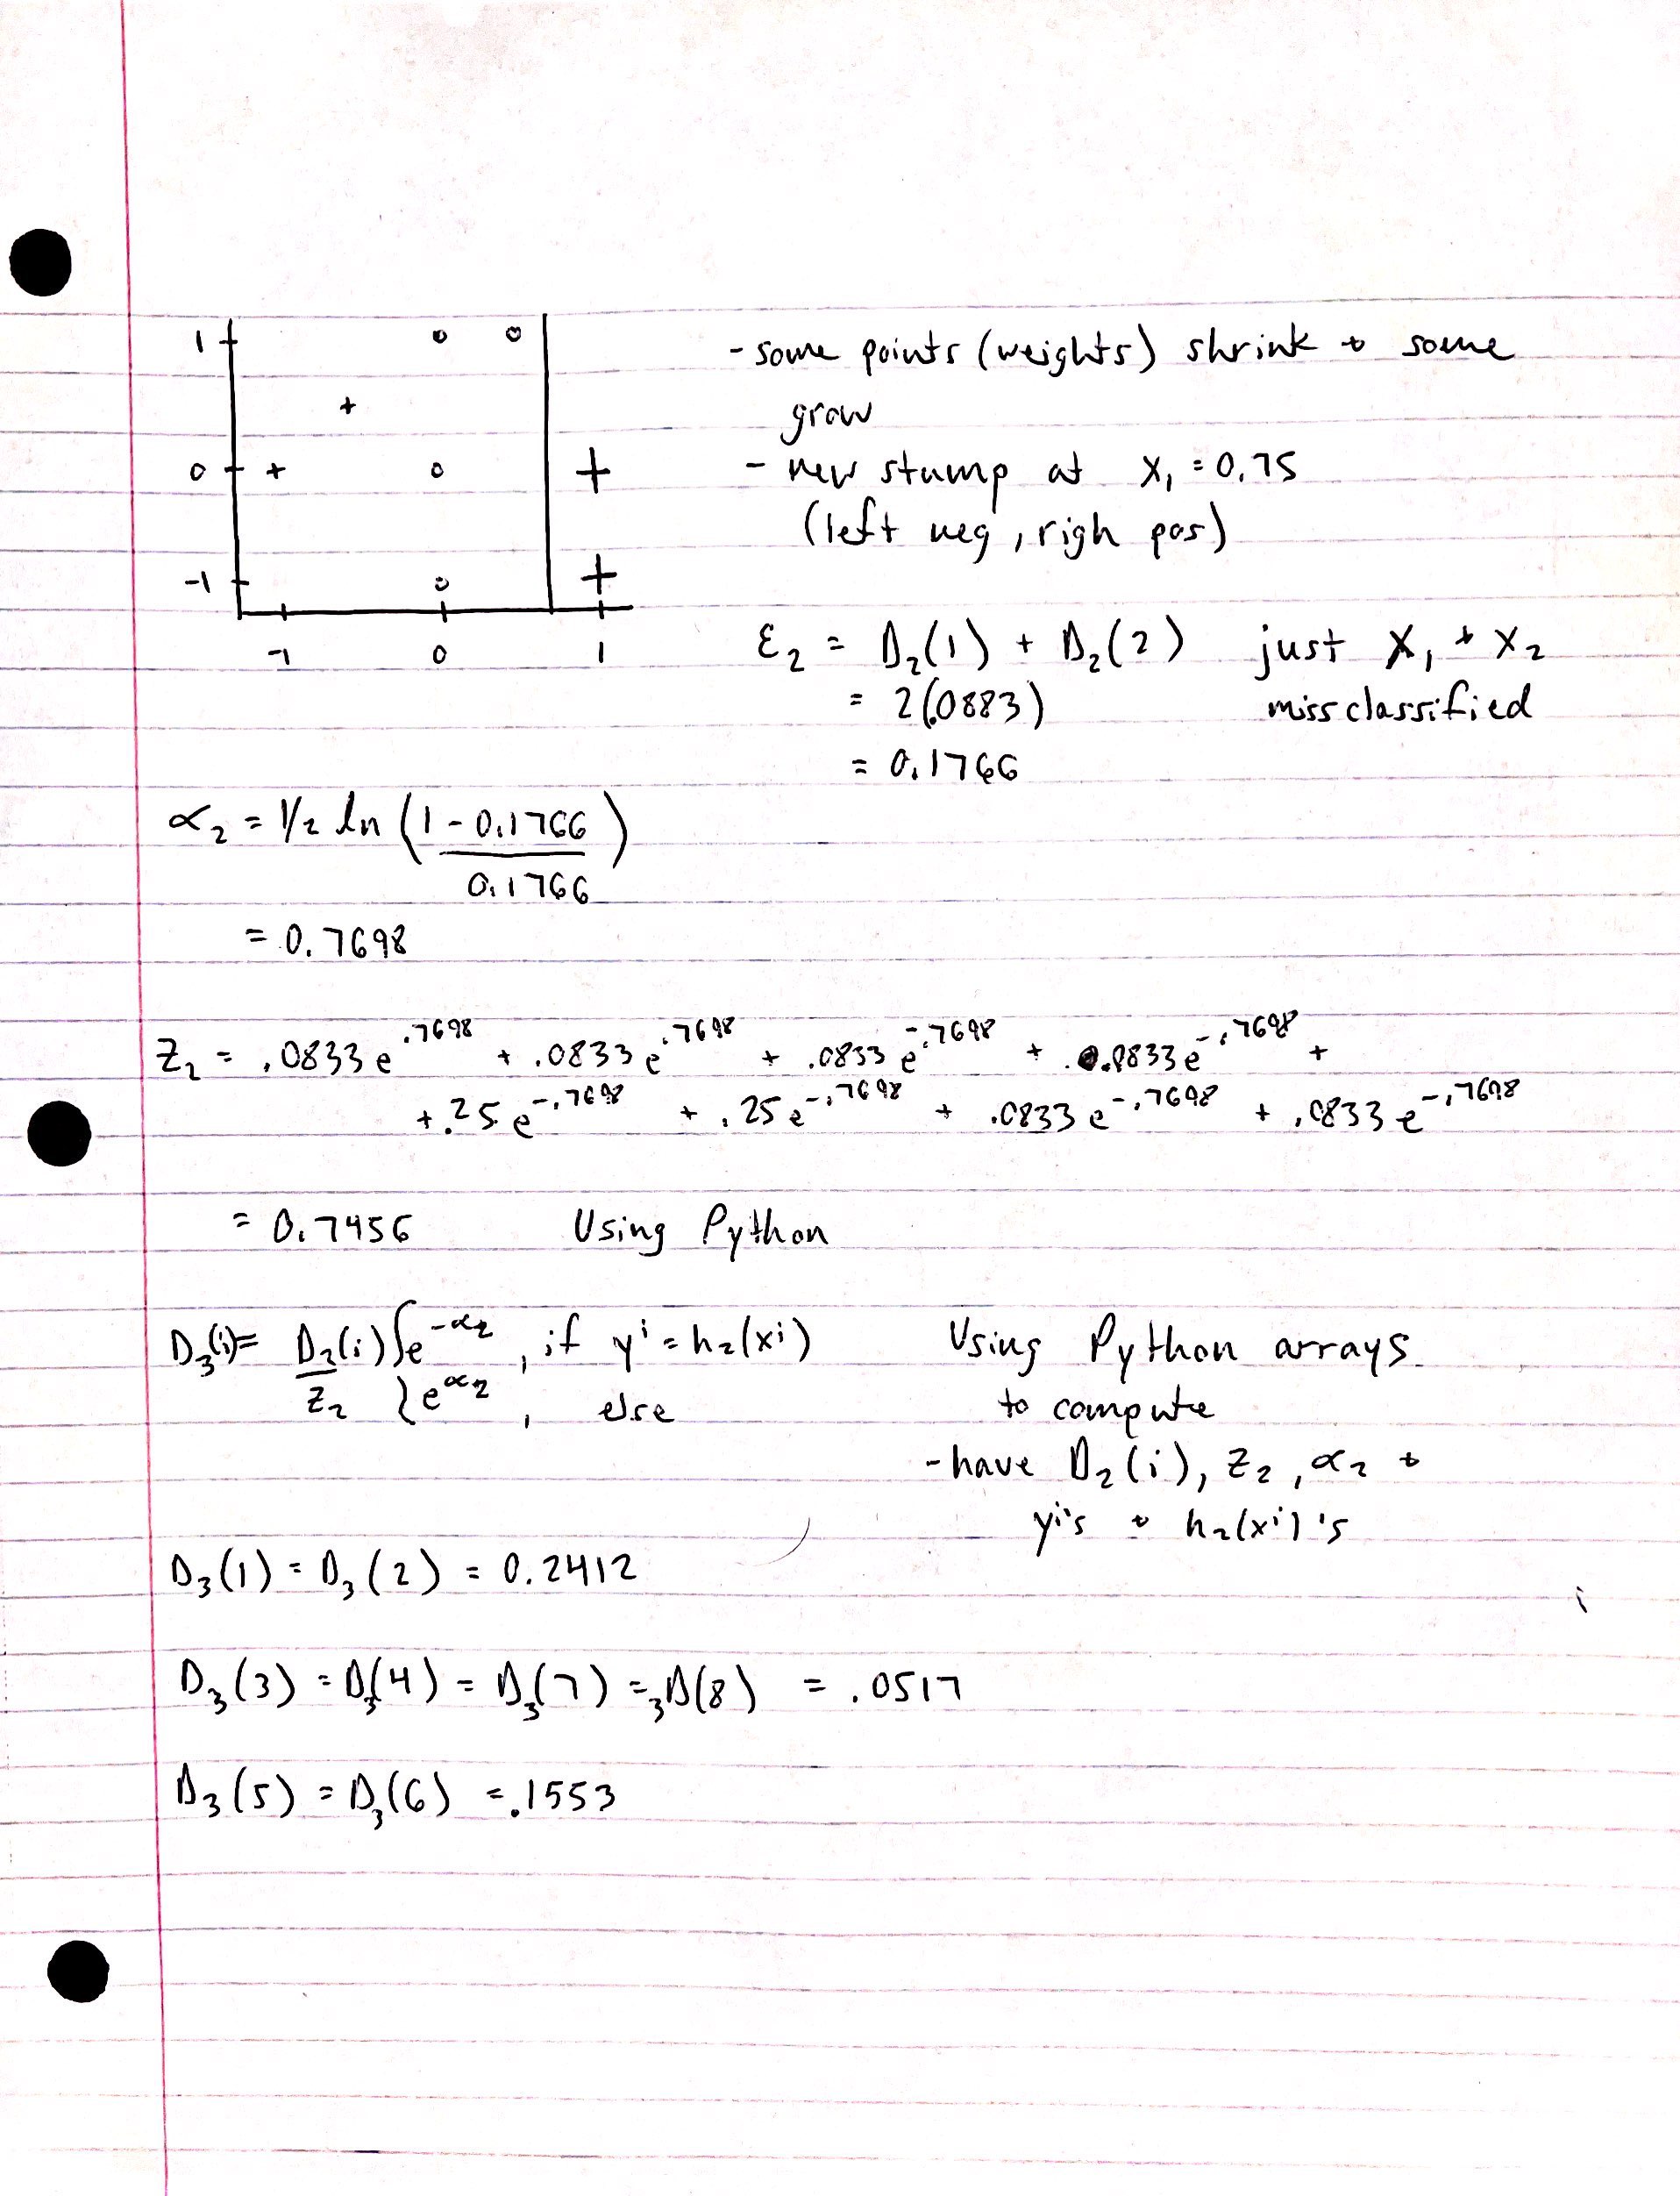 1
0
-1
-1 0 1
- some points (weights) shrink + some
grow
- new stump at x₁ = 0.75
(left neg, righ pos)
ε₂ = D₂(1) + D₂(2) just x₁ + x₂
= 2(.0883) missclassified
= 0.1766
α₂ = 1/2 ln (1 - 0.1766 / 0.1766)
= 0.7698
Z₂ = .0833e^.7698 + .0833e^.7698 + .0833e^-.7698 + .0833e^-.7698 +
+ .25e^-.7698 + .25e^-.7698 + .0833e^-.7698 + .0833e^-.7698
= 0.7456 Using Python
D₃(i) = D₂(i)/Z₂ { e^-α₂, if yⁱ = h₂(xⁱ) Using Python arrays
e^α₂, else to compute
- have D₂(i), Z₂, α₂ +
yⁱ's + h₂(xⁱ)'s
D₃(1) = D₃(2) = 0.2412
D₃(3) = D₃(4) = D₃(7) = ₃D(8) = .0517
D₃(5) = D₃(6) = .1553